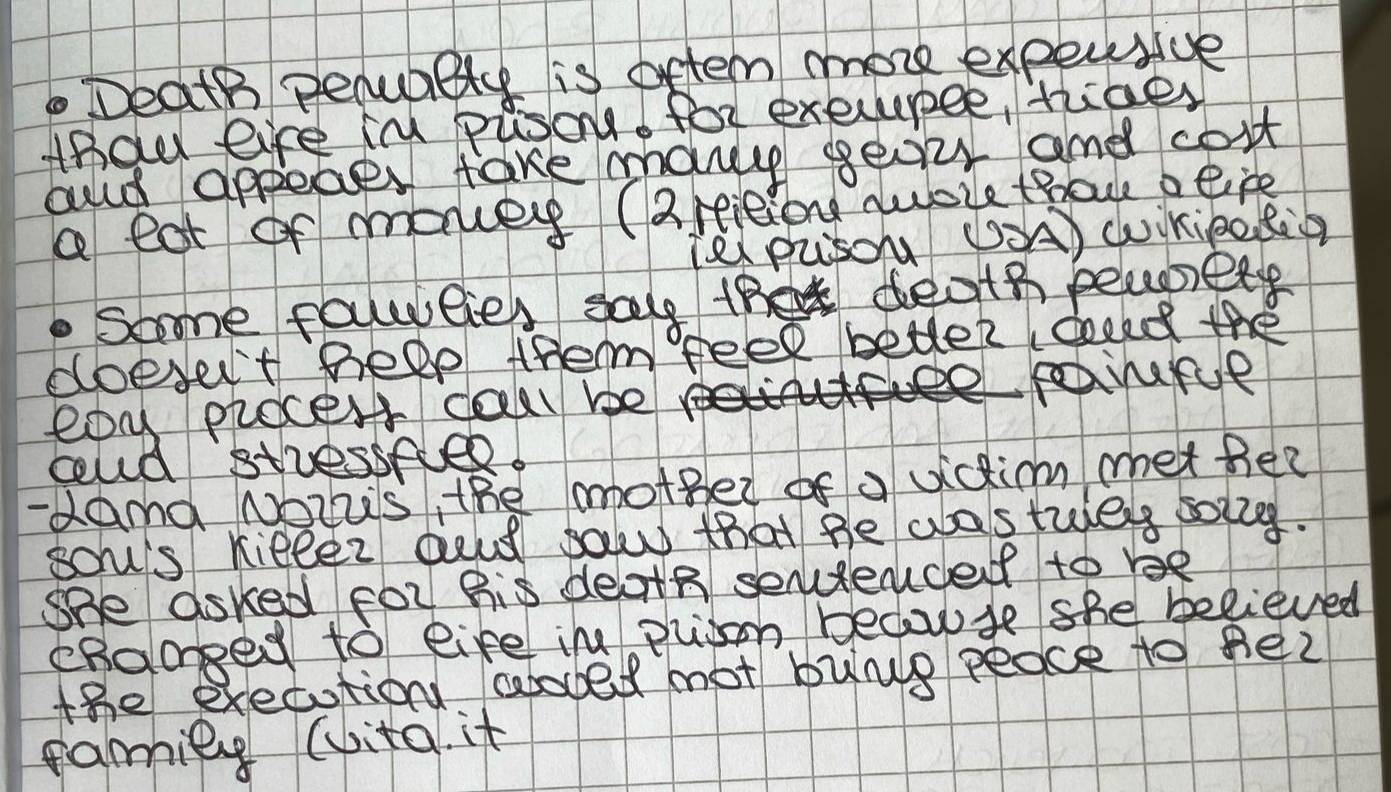 • Death penalty is often more expensive
than life in prison. for exemple, trials
and appeals take many years and cost
a lot of money (2 milion more than a life
in prison USA) wikipedia
• Some families say that death penalty
doesn't help them feel better, and the
long process can be painful
and stressful.
- Lama Norris, the mother of a victim, met her
son's killer and saw that he was truley sorry.
She asked for his death sentenced to be
changed to life in prison because she believed
the execution would not bring peace to her
family (vita.it